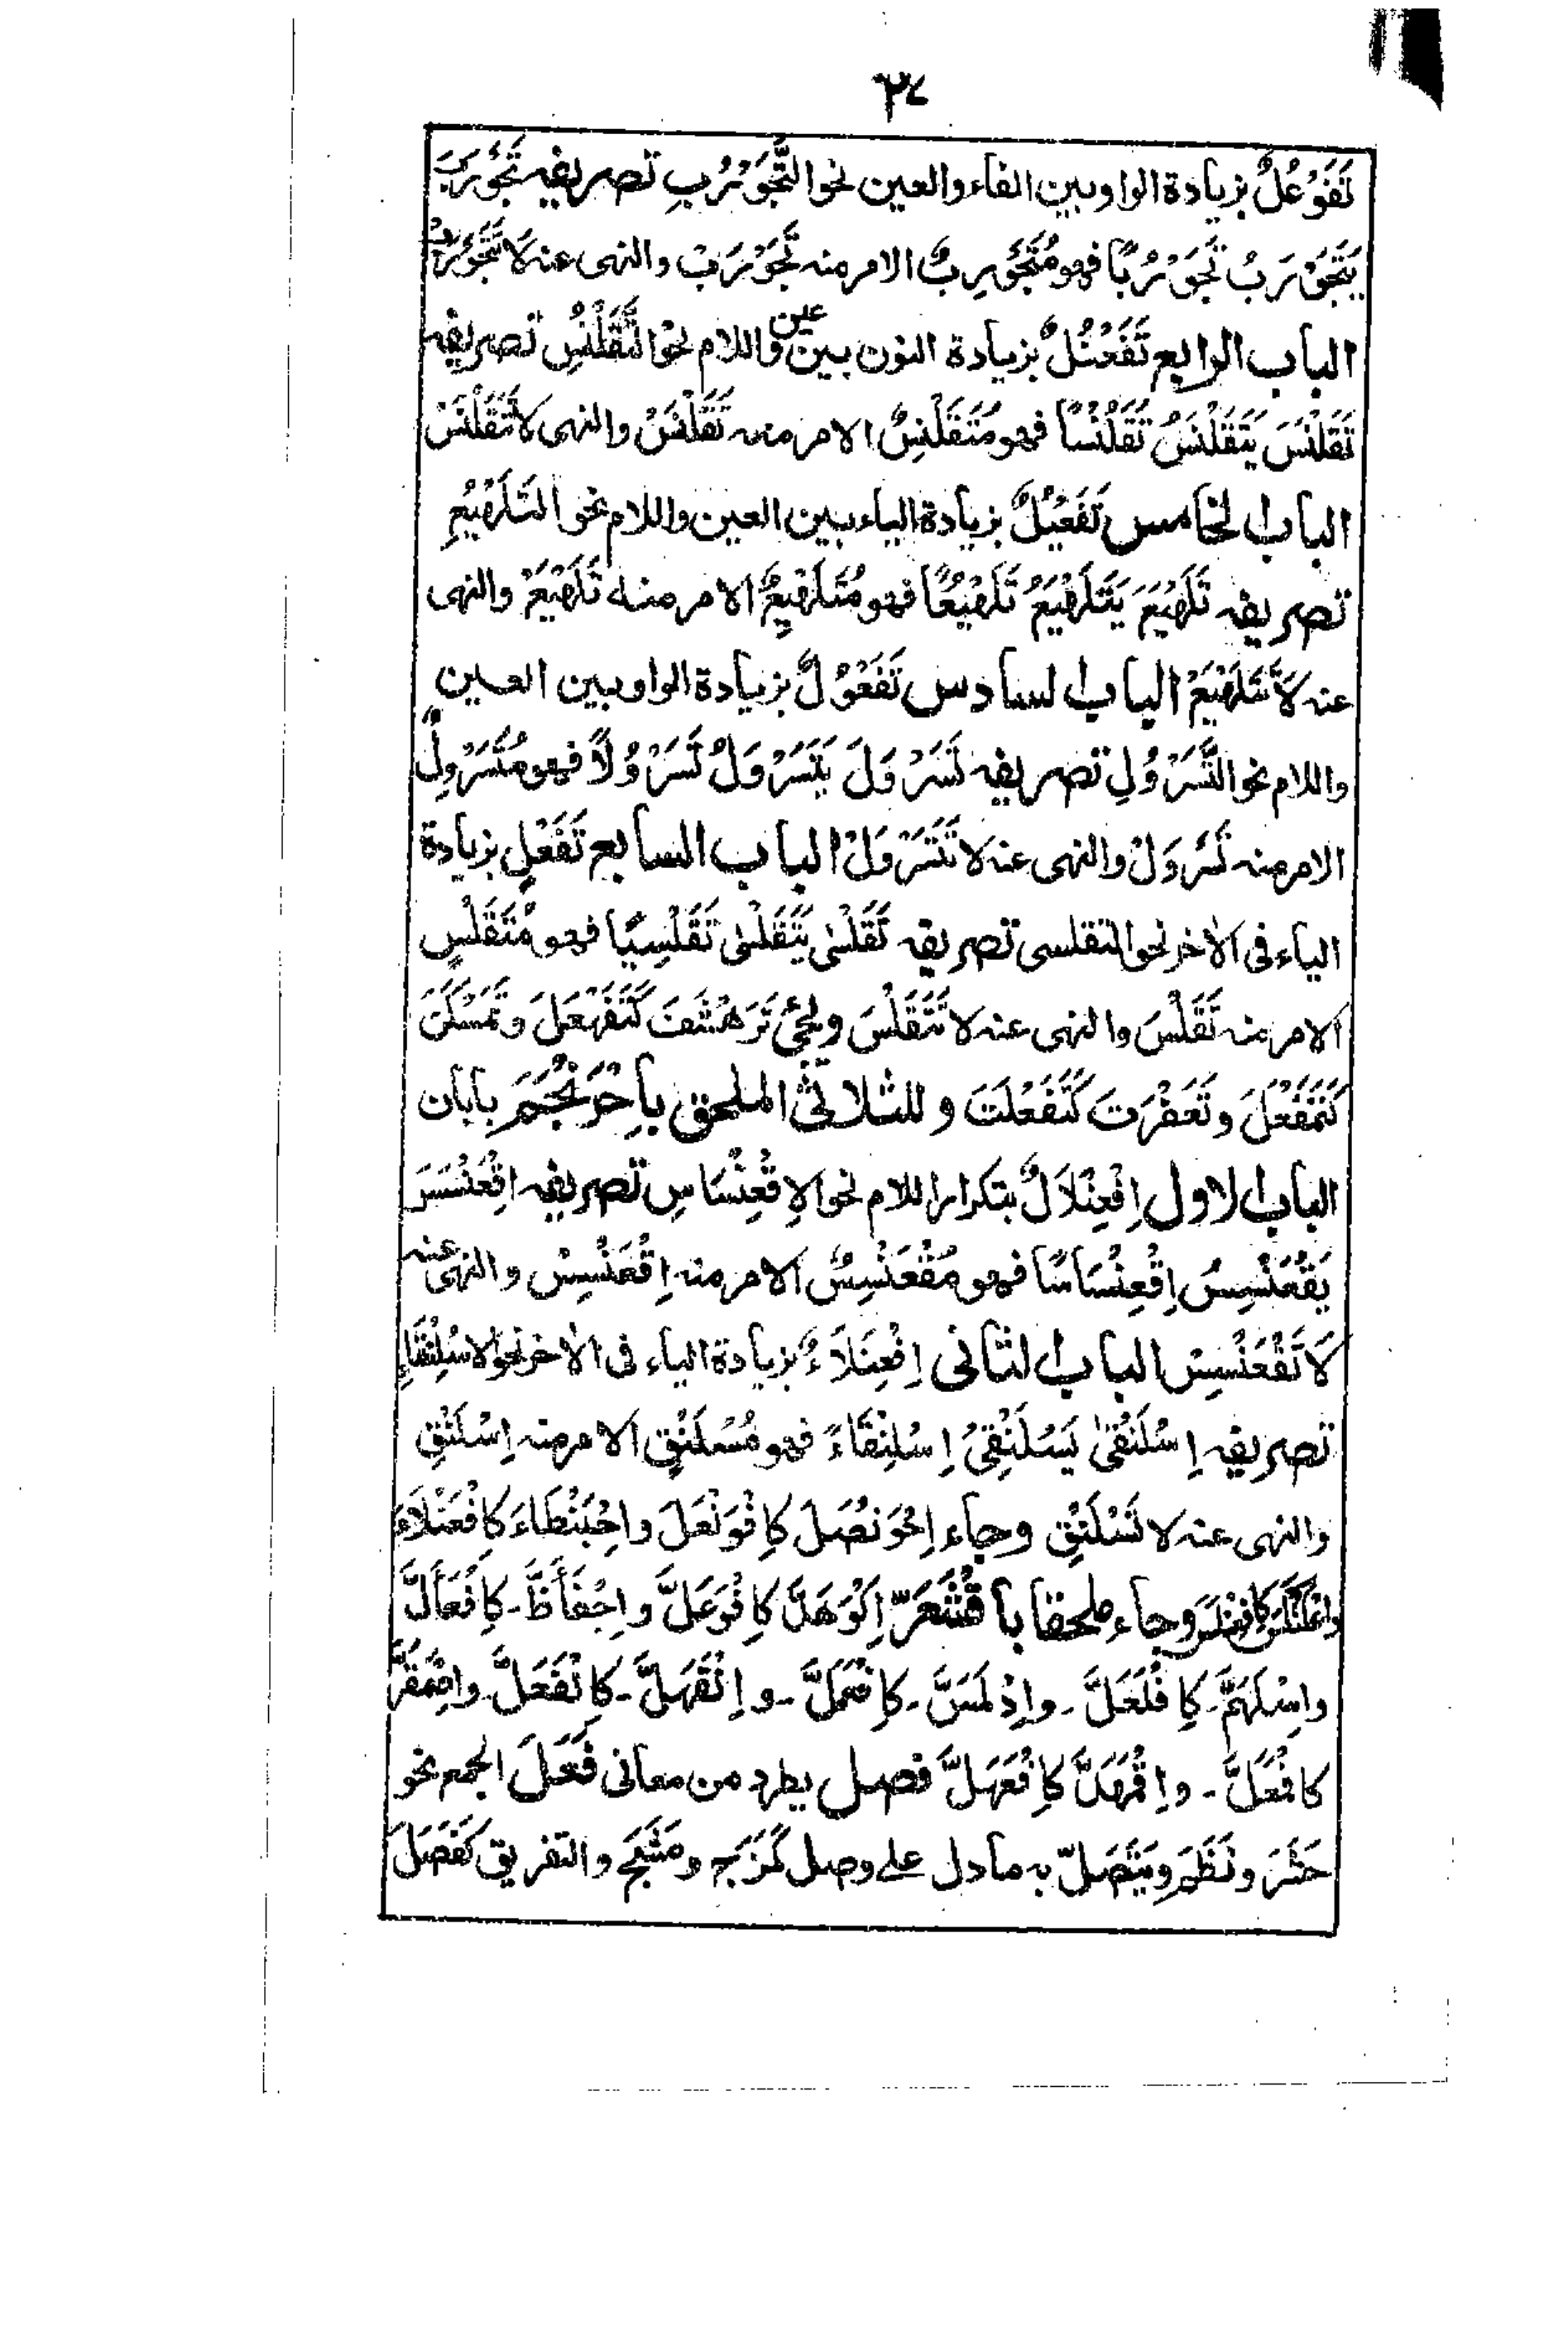 ٣٤
تَفَوْعُلٌ بزيادة الواو بين الفاء والعين نحو التَّجَوْرُبِ تصريفه تَجَوْرَبَ
يَتَجَوْرَبُ تَجَوْرُبًا فهو مُتَجَوْرِبٌ الامر منه تَجَوْرَبْ والنهى عنه لَا تَتَجَوْرَبْ
الباب الرابع تَفَعْنُلٌ بزيادة النون بين عين واللام نحو التَّقَلْنُسِ تصريفه
تَقَلْنَسَ يَتَقَلْنَسُ تَقَلْنُسًا فهو مُتَقَلْنِسٌ الامر منه تَقَلْنَسْ والنهى لا تَتَقَلْنَسْ
الباب الخامس تَفَعْيُلٌ بزيادة الياء بين العين واللام نحو التَلَهْيُعِ
تصريفه تَلَهْيَعَ يَتَلَهْيَعُ تَلَهْيُعًا فهو مُتَلَهْيِعٌ الامر منه تَلَهْيَعْ والنهى
عنه لَا تَتَلَهْيَعْ الباب السادس تَفَعْوُلٌ بزيادة الواو بين العين
واللام نحو التَّسَرْوُلِ تصريفه تَسَرْوَلَ يَتَسَرْوَلُ تَسَرْوُلًا فهو مُتَسَرْوِلٌ
الامر منه تَسَرْوَلْ والنهى عنه لا تَتَسَرْوَلْ الباب السابع تَفَعْلٍ بزيادة
الياء فى الآخر نحو التقلسى تصريفه تَقَلْسٰى يَتَقَلْسٰى تَقَلْسِيًا فهو مُتَقَلْسٍ
الامر منه تَقَلْسَ والنهى عنه لا تَتَقَلْسَ ويجئ تَرَهْشَفَ كَتَفَهْعَلَ وَتَمَسْكَنَ
كَتَمَفْعَلَ وتَعَفْرَتَ كَتَفَعْلَتَ وللثلاثى الملحق باِحْرَنْجَمَ بابان
الباب الاول اِفْعِنْلَالٌ بتكرار اللام نحو الاِقْعِنْسَاسِ تصريفه اِقْعَنْسَسَ
يَقْعَنْسِسُ اِقْعِنْسَاسًا فهو مُقْعَنْسِسٌ الامر منه اِقْعَنْسِسْ والنهى عنه
لَا تَقْعَنْسِسْ الباب الثانى اِفْعِنْلَاءٌ بزيادة الياء فى الآخر نحو الاِسْلِنْقَاءِ
تصريفه اِسْلَنْقٰى يَسْلَنْقِىْ اِسْلِنْقَاءً فهو مُسْلَنْقٍ الامر منه اِسْلَنْقِ
والنهى عنه لا تَسْلَنْقِ وجاء اِحْوَنْصَلَ كَاِفْوَنْعَلَ واِحْبَنْطَاءَ كَافْعَنْلَاءَ
وجاء ملحقا باقْشَعَرَّ اِكْوَهَدَّ كَاِفْوَعَلَّ واِجْفَأَظَّ - كَاِفْعَأَلَّ
واِسْلَهَمَّ - كَاِفْلَعَلَّ - واِذْلَمَسَّ - كَاِفْمَعَلَّ - واِنْقَهَلَّ - كَاِنْفَعَلَّ - واِقْمَقَرَّ
كافْمَعَلَّ - واِقْمَهَدَّ كَاِفْعَهَلَّ فصل يطرد من معانى فَعَلَ الجمع نحو
حَشَرَ ونَظَمَ ويَتَّصِلُ به ما دل على وصل كَمَزَجَ ومَشَجَ والتفريق كَفَصَلَ